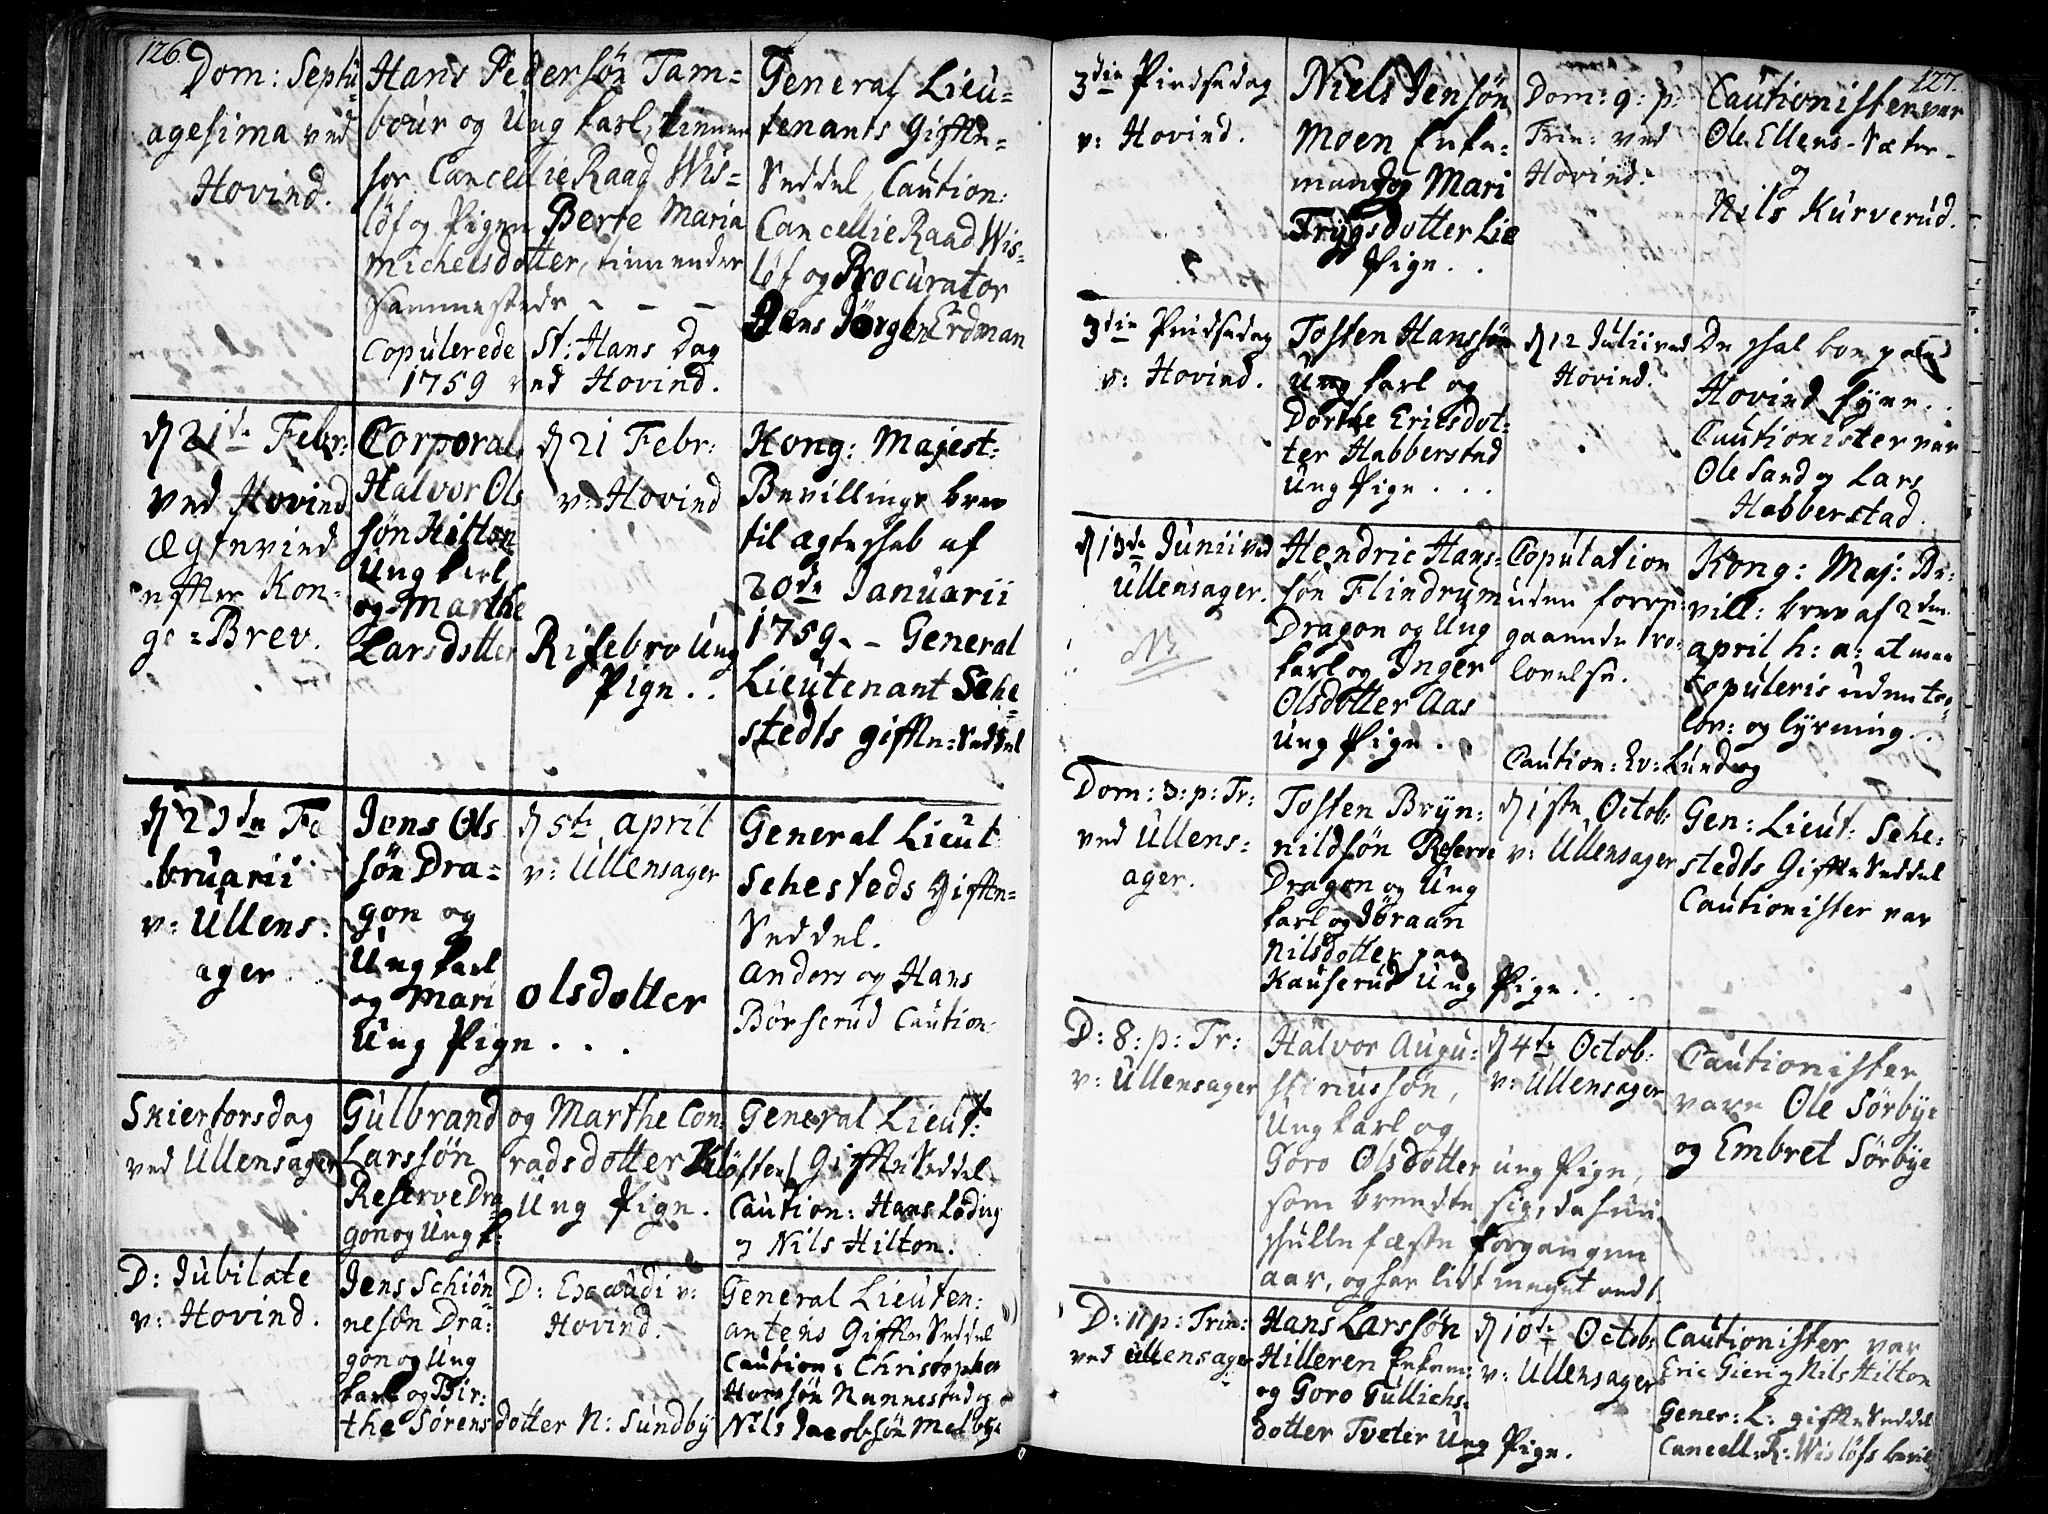 126.
Dom: Septu-
agesima ved
Hovind.
Hans Pedersøn Tam=
bour og Ung karl, tienner
hos Cancellie Raad Wis=
løf og Pigen Berte Maria
Michelsdotter, tienender
sammesteds - - -
Copulerede St: Hans Dag
1759 ved Hovind.
General Lieu=
tenants Gifte=
Seddel, Caution:
Cancellie Raad Wis=
løf og Procurator
Jens Jørgen Erdman
d 21de Febr:
ved Hovind
Ægtevied
efter Kon-
ge=Brev.
Corporal
Halvor Ols
søn Hilton
Ung karl
og Marthe
Larsdotter
d 21 Febr:
v: Hovind
Risebro Ung
Pige..
Kong: Majest:
Bevillings brev
til ægteskab af
20de Januarii
1759 - - General
Lieutenant Sehe
stedts gifte=Seddel
d 23de Fe
bruarii
v: Ullens:
ager.
Jens Ols
søn Dra=
gon og
Ung karl
og Mari
Ung Pige...
d 5te april
v: Ullensager
Olsdotter
General Lieut
Sehesteds Gifte=
Seddel.
Anders og Hans
Børserud Caution:
Skiertorsdag
ved Ullensager
Gulbrand
Larssøn
Reserve Dra
gon og Ung k:
og Marthe Con
radsdotter Kløfte
Ung Pige.
General Lieut:
Gifte Seddel
Caution: Hans Løding
og Nils Hilton.
D: Jubilate
v: Hovind.
Jens Schiøn
nesøn Dra:
gon og Ung
karl og Bir:
the Sørens
D: Exaudi v:
Hovind.
dotter N: Sundby
General Lieuten:
antens Gifte Seddel
Caution: Christopher
Hanssøn Nannestad og
Nils Jacobsøn Melbye
127.
3die Pindsedag
v: Hovind.
Niels Jensøn
Moen Enke=
mand og Mari
Trygsdotter Lie
Pige..
Dom: 9: p:
Trin: ved
Hovind.
Cautionister var
Ole Ellens-Sæter-
og
Nils Kurverud.
3die Pindsedag
v: Hovind.
Tosten Hanssøn
Ung karl og
Dorthe Ericsdot=
ter Habberstad
Ung Pige...
d 12 Julii ved
Hovind.
De skal boe paa
Hovind Eyer..
Cautionister var
Ole Sand og Lars
Habberstad.
d 13de Junii ved
Ullensager.
NB
Hendric Hans=
søn Flindrum
Dragon og Ung
karl og Inger
Olsdotter Aas
Ung Pige..
Copulation
uden foreg:
gaaende tro=
lovelse.
Caution: Ev: Lund og
Kong: Maj: Be=
vill: brev af 2den
april h: a: at maa
Copuleris uden tro=
lov: og lysning..
Dom: 3: p: Tr:
ved Ullens=
ager.
Tosten Bryn=
nildsøn Reserve
Dragon og Ung
karl og Jøraan
Nilsdotter paa
Kauserud Ung Pige...
d 1ste Octob:
v: Ullensager
Gen: Lieut: Sehe=
stedts Gifte Seddel
Cautionister var
D: 8: p: Tr:
v: Ullensager
Halvor Augu=
stinussøn,
Ung karl og
Goro Olsdotter ung Pige,
som brendte sig, da hun
skulle fæste forgangen
aar, og har lidt meget ondt.
d 4te Octob:
v: Ullensager
Cautionister
vare Ole Sørbye
og Embret Sørbye
D: 11 p: Trin:
ved Ullensager
Hans Larssøn
Hilleren Enkem:
og Goro Gullichs=
dotter Tveter Ung Pige.
d 10de Octob:
v: Ullensager
Cautionister var
Eric Gier og Nils Hilton
Gener: L: gifte Seddel
Cancell: R: Wisløfs bevil